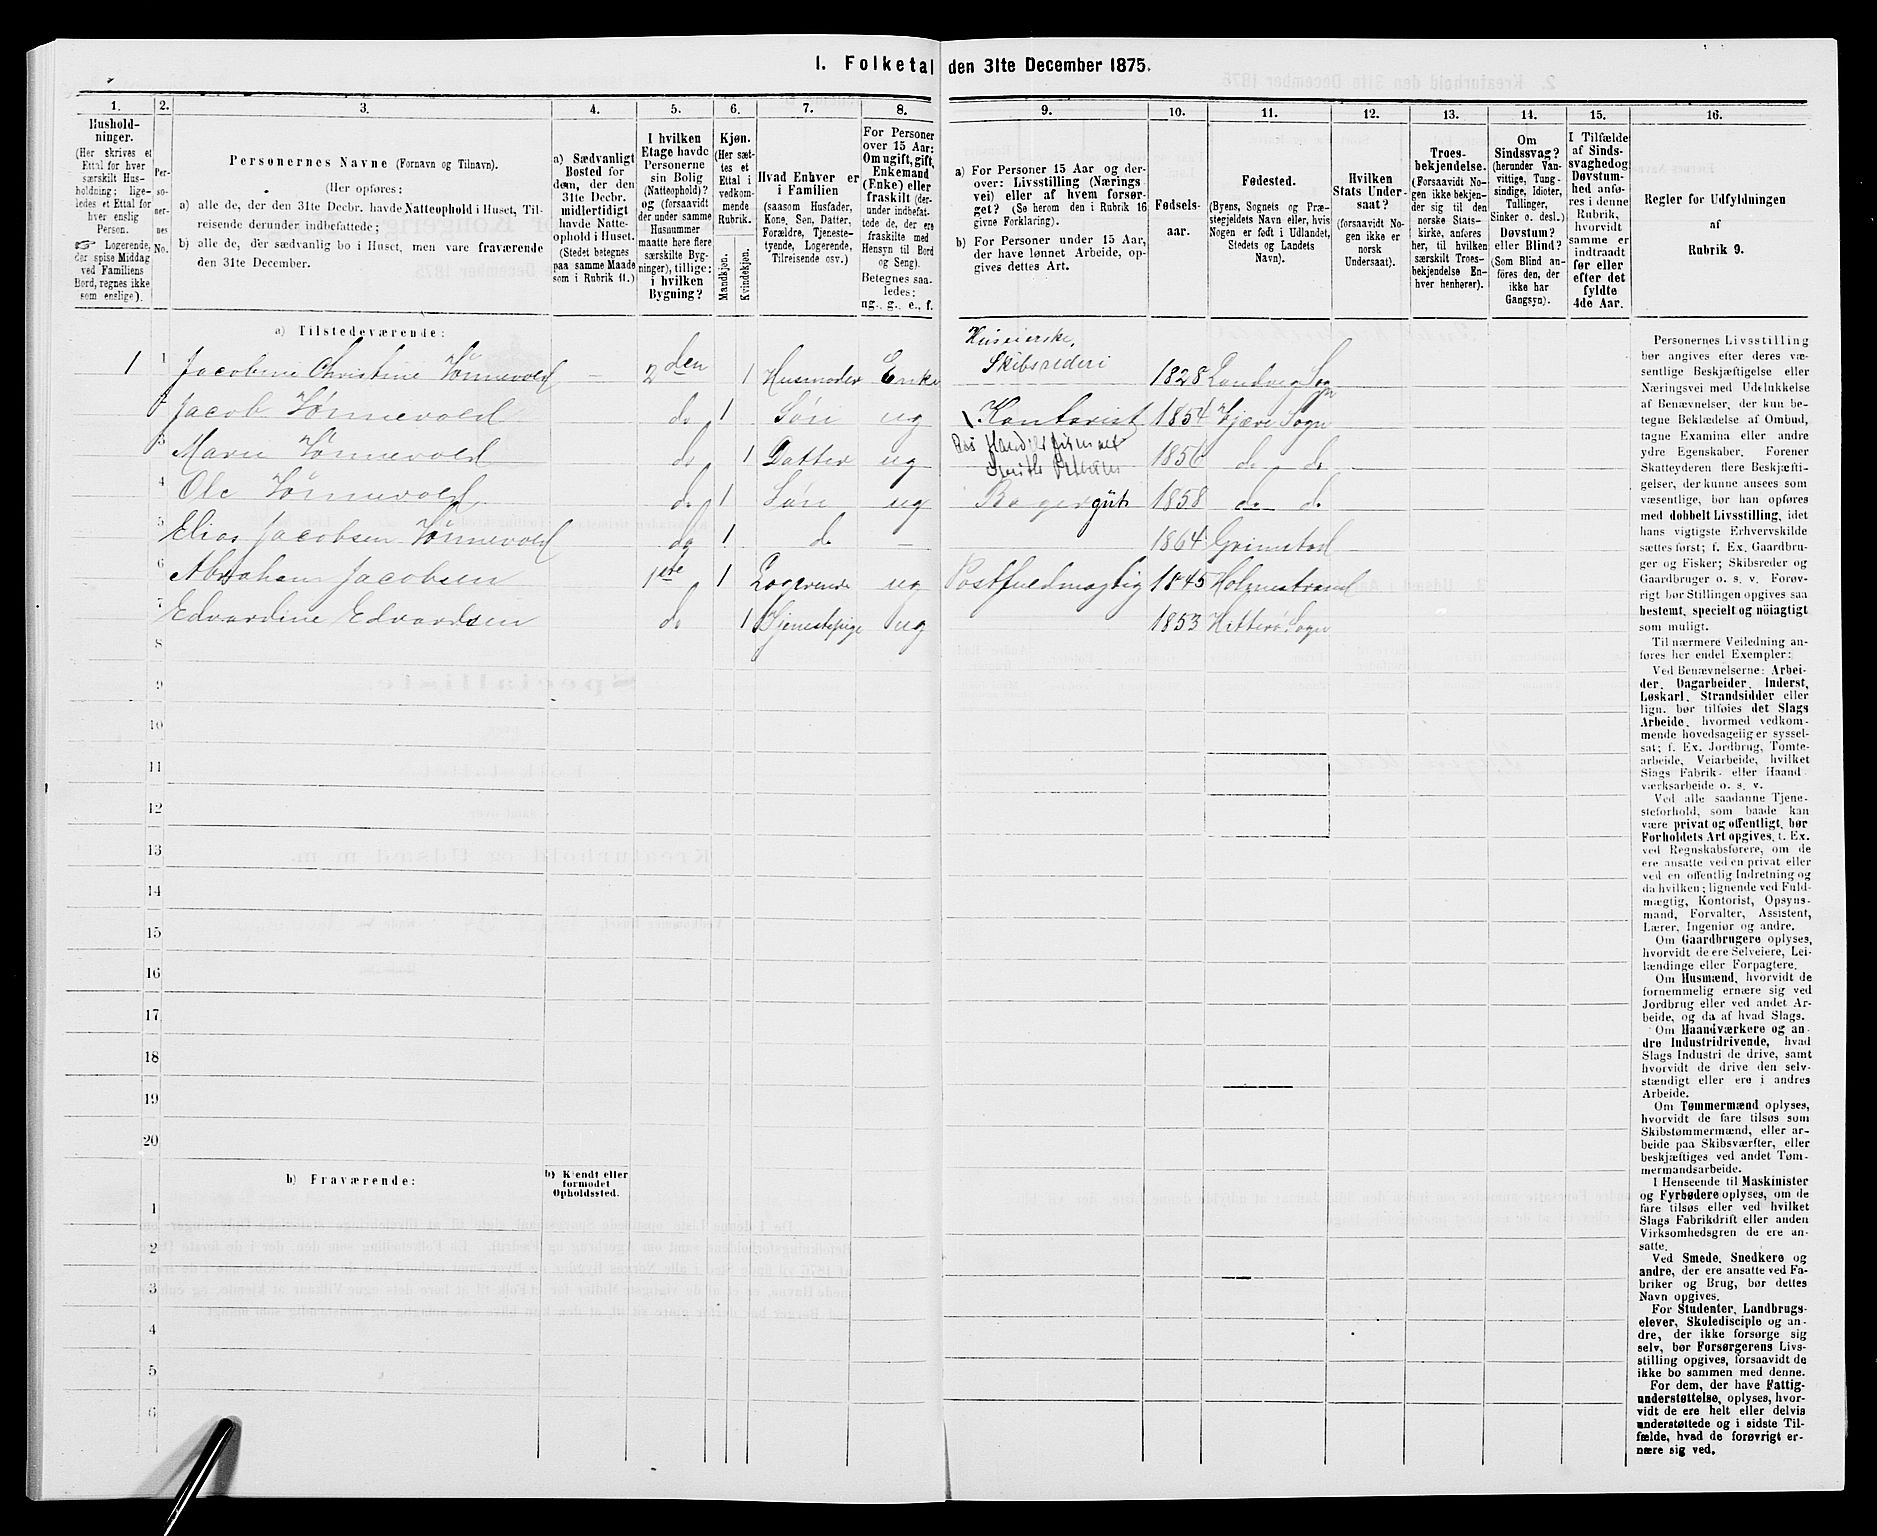 1. Folketal den 31te December 1875.
1.
2.
3.
4.
5.
6.
7.
8.
9.
10.
11.
12.
13.
14.
15.
16.
Hushold-
ninger.
(Her skrives et
Ettal for hver
særskilt Hus-
holdning; lige-
ledes et Ettal for
hver enslig
Person.
☞ Logerende,
der spise Middag
ved Familiens
Bord, regnes ikke
som enslige).
Per-
so-
ner-
nes
No.
Personernes Navne (Fornavn og Tilnavn).
(Her opføres:
a) alle de, der den 31te Decbr. havde Natteophold i Huset, Til-
reisende derunder indbefattede;
b) alle de, der sædvanlig bo i Huset, men vare fraværende
den 31te December.
a) Sædvanligt
Bosted for
dem, der den
31te Decbr.
midlertidigt
havde Natte-
ophold i Huset.
(Stedet betegnes
paa samme Maade
som i Rubrik 11.)
I hvilken
Etage havde
Personerne
sin Bolig
(Natteophold)?
og (forsaavidt
der under samme
Husnummer
maatte høre flere
særskilte Byg-
ninger), tillige:
i hvilken
Bygning?
Kjøn.
(Her sæt-
tes et
Ettal i
vedkom-
mende
Rubrik.
Mandkjøn.
Kvindekjøn.
Hvad Enhver er
i Familien
(saasom Husfader,
Kone, Søn, Datter,
Forældre, Tjeneste-
tyende, Logerende,
Tilreisende osv.)
For Personer
over 15 Aar:
Om ugift, gift,
Enkemand
(Enke) eller
fraskilt (der-
under indbefat-
tede de, der ere
fraskilte med
Hensyn til Bord
og Seng).
Betegnes saa-
ledes:
ug., g., e., f.
a) For Personer 15 Aar og der-
over: Livsstilling (Nærings-
vei) eller af hvem forsør-
get? (Se herom den i Rubrik 16
givne Forklaring).
b) For Personer under 15 Aar,
der have lønnet Arbeide, op-
gives dettes Art.
Fødsels-
aar.
Fødested.
(Byens, Sognets og Præ-
stegjeldets Navn eller, hvis
Nogen er født i Udlandet,
Stedets og Landets
Navn).
I hvilken
Stats Under-
saat?
(forsaavidt No-
gen ikke er
norsk
Undersaat).
Troes-
bekjendelse.
(Forsaavidt No-
gen ikke bekjen-
der sig til den
norske Stats-
kirke, anføres
her, til hvilken
særskilt Troes-
bekjendelse En-
hver henhører).
Om
Sindssvag?
(herunder Van-
vittige, Tung-
sindige, Idioter,
Tullinger,
Sinker o. desl.)
Døvstum?
eller Blind?
(Som Blind an-
føres den, der
ikke har
Gangsyn).
I Tilfælde
af Sinds-
svaghed og
Døvstum-
hed anfø-
res i denne
Rubrik,
hvorvidt
samme er
indtraadt
før eller
efter det
fyldte
4de Aar.
Regler for Udfyldningen
af
Rubrik 9.
a) Tilstedeværende:
1 1 Jacobine Christine Tønnevold – 2den 1 Husmoder Enke Huseierske, Skibsrederi 1828 Landvig Sogn
2 Jacob Tønnevold do 1 Søn ug Kontorist 1854 Fjære Sogn
3 Marie Tønnevold do 1 Datter ug 1856 do do
4 Ole Tønnevold do 1 Søn ug 1858 do do
5 Elias Jacobsen Tønnevold do 1 do – 1864 Grimstad
6 Abraham Jacobsen 1ste 1 Logerende ug Postfuldmægtig 1845 Holmestrand
7 Edvardine Edvardsen do 1 Tjenestepige ug 1853 Hitterø Sogn
8
9
10
11
12
13
14
15
16
17
18
19
20
b) Fraværende:
b) Kjendt eller
formodet
Opholdssted.
1
2
3
4
5
6
Personernes Livsstilling
bør angives efter deres væ-
sentlige Beskjæftigelse eller
Næringsvei med Udelukkelse
af Benævnelser, der kun be-
tegne Beklædelse af Ombud,
tagne Examina eller andre
ydre Egenskaber. Forener
Skatteyderen flere Beskjæfti-
gelser, der kunne ansees som
væsentlige, bør han opføres
med dobbelt Livsstilling, idet
hans vigtigste Erhvervskilde
sættes først; f. Ex. Gaardbru-
ger og Fisker; Skibsreder og
Gaardbruger o. s. v. Forøv-
rigt bør Stillingen opgives saa
bestemt, specielt og nøiagtigt
som muligt.
Til nærmere Veiledning an-
føres her endel Exempler:
Ved Benævnelserne: Arbei-
der, Dagarbeider, Inderst,
Løskarl, Strandsidder eller
lign. bør tilføies det Slags
Arbeide, hvormed vedkom-
mende hovedsagelig er syssel-
sat; f. Ex. Jordbrug, Tomte-
arbeide, Veiarbeide, hvilket
Slags Fabrik- eller Haand-
værksarbeide o. s. v.
Ved alle saadanne Tjene-
steforhold, som baade kan
være privat og offentligt, bør
Forholdets Art opgives, f. Ex.
ved Regnskabsførere, om de
ere ansatte ved en privat eller
ved en offentlig Indretning og
da hvilken; lignende ved Fuld-
mægtig, Kontorist, Opsyns-
mand, Forvalter, Assistent,
Lærer, Ingeniør og andre.
Om Gaardbrugere oplyses,
hvorvidt de ere Selveiere, Lei-
lændinge eller Forpagtere.
Om Husmænd, hvorvidt de
fornemmelig ernære sig ved
Jordbrug eller ved andet Ar-
beide, og da af hvad Slags.
Om Haandværkere og an-
dre Industridrivende, hvad
Slags Industri de drive, samt
hvorvidt de drive den selv-
stændigt eller ere i andres
Arbeide.
Om Tømmermænd oplyses,
hvorvidt de fare tilsøs som
Skibstømmermænd, eller ar-
beide paa Skibsværfter, eller
beskjæftiges ved andet Tøm-
mermandsarbeide.
I Henseende til Maskinister
og Fyrbødere oplyses, om de
fare tilsøs eller ved hvilket
Slags Fabrikdrift eller anden
Virksomhedsgren de ere an-
satte.
Ved Smede, Snedkere og
andre, der ere ansatte ved Fa-
briker og Brug, bør dettes
Navn opgives.
For Studenter, Landbrugs-
elever, Skoledisciple og an-
dre, der ikke forsørge sig
selv, bør Forsørgerens Livs-
stilling opgives, forsaavidt de
ikke bo sammen med denne.
For dem, der have Fattig-
understøttelse, oplyses, hvor-
vidt de ere helt eller delvis
understøttede og i sidste Til-
fælde, hvad de forøvrigt er-
nære sig ved.